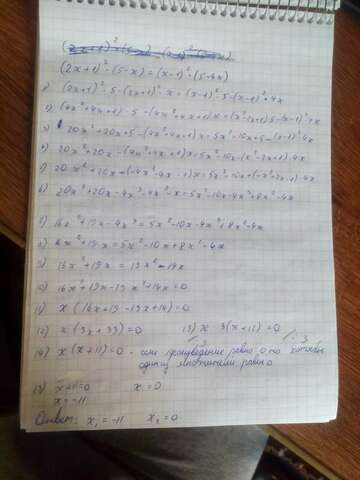 (2x+1)²·(5-x)=(x-1)²·(5-4x)
1) (2x+1)²·5-(2x+1)²·x=(x-1)²·5-(x-1)²·4x
2) (4x²+4x+1)·5-(4x²+4x+1)x=(x²-2x+1)·5-(x-1)²4x
3) 20x²+20x+5-(4x²+4x+1)x=5x²-10x+5-(x-1)²·4x
4) 20x²+20x-(4x²+4x+1)x=5x²-10x-(x²-2x+1)·4x
5) 20x²+20x+(-4x²-4x-1)x=5x²-10x+(-x²+2x-1)·4x
6) 20x²+20x-4x³-4x²-x=5x²-10x-4x³+8x²-4x
7) 16x²+19x-4x³=5x²-10x-4x³+8x²-4x
8) 16x²+19x=5x²-10x+8x²-4x
9) 16x²+19x=13x²-14x
10) 16x²+19x-13x²+14x=0
11) x(16x+19-13x+14)=0
12) x(3x+33)=0 13) x·3(x+11)=0
/:3 /:3
14) x(x+11)=0 - если произведение равно 0, то хотя бы
один из множителей равен 0
15) x+11=0 x=0
x=-11
Ответ: x₁=-11 x₂=0